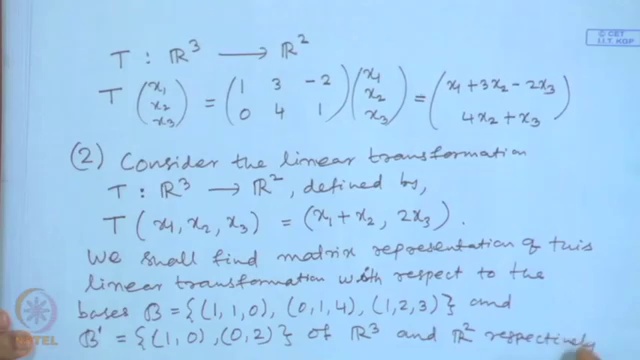 © CET
I.I.T. KGP
T : ℝ³ ⟶ ℝ²
T (x₁ x₂ x₃) = (1 3 -2 / 0 4 1) (x₁ x₂ x₃) = (x₁ + 3x₂ - 2x₃ / 4x₂ + x₃)
(2) Consider the linear transformation
T : ℝ³ ⟶ ℝ², defined by,
T (x₁, x₂, x₃) = (x₁ + x₂, 2x₃).
We shall find matrix representation of this
linear transformation with respect to the
bases B = {(1, 1, 0), (0, 1, 4), (1, 2, 3)} and
B' = {(1, 0), (0, 2)} of ℝ³ and ℝ² respectively
NPTEL